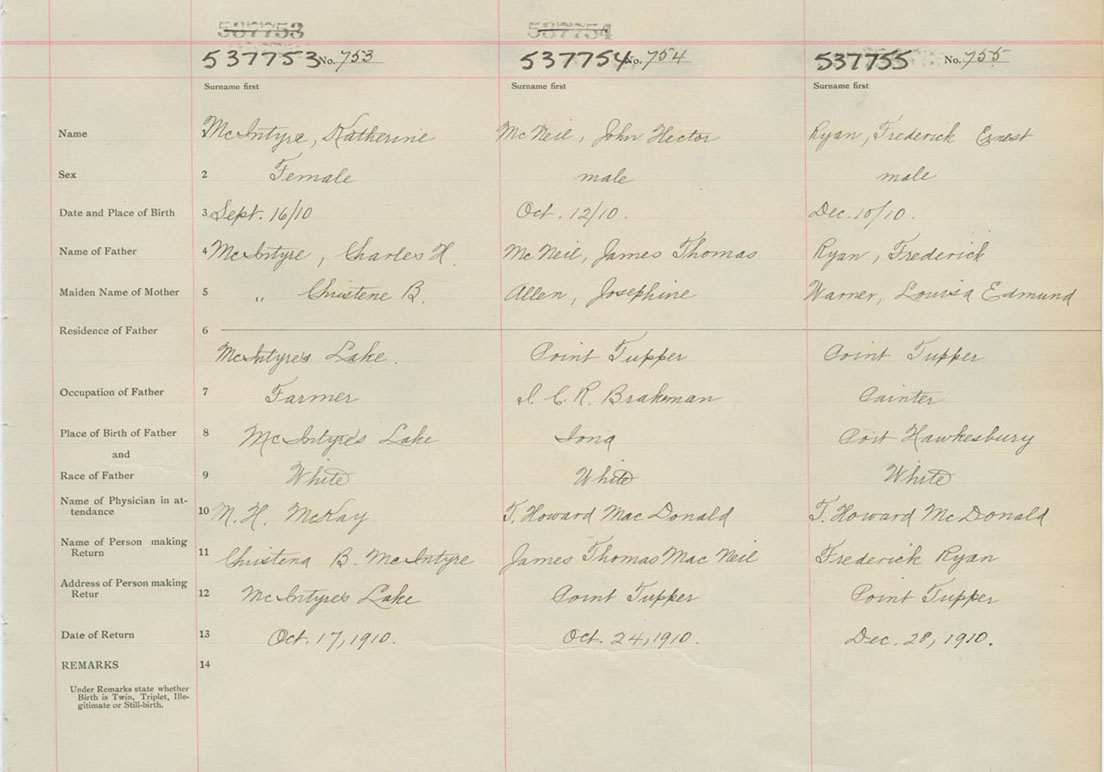 537753 537754
537753 No. 753 537754 No. 754 537755 No. 755
Surname first Surname first Surname first
Name 1 McIntyre, Katherine McNeil, John Hector Ryan, Frederick Ernest
Sex 2 Female male male
Date and Place of Birth 3 Sept. 16/10 Oct. 12/10. Dec. 10/10.
Name of Father 4 McIntyre, Charles H. McNeil, James Thomas Ryan, Frederick
Maiden Name of Mother 5 " Christene B. Allen, Josephine Warner, Louisa Edmund
Residence of Father 6
McIntyre's Lake. Point Tupper Point Tupper
Occupation of Father 7 Farmer I. C. R. Brakman Painter
Place of Birth of Father 8 McIntyre's Lake Iona Port Hawkesbury
and
Race of Father 9 White White White
Name of Physician in at-
tendance 10 M. H. McKay T. Howard MacDonald T. Howard McDonald
Name of Person making
Return 11 Christena B. McIntyre James Thomas MacNeil Frederick Ryan
Address of Person making
Retur 12 McIntyre's Lake Point Tupper Point Tupper
Date of Return 13 Oct. 17, 1910. Oct. 24, 1910. Dec. 28, 1910.
REMARKS 14
Under Remarks state whether
Birth is Twin, Triplet, Ille-
gitimate or Still-birth.